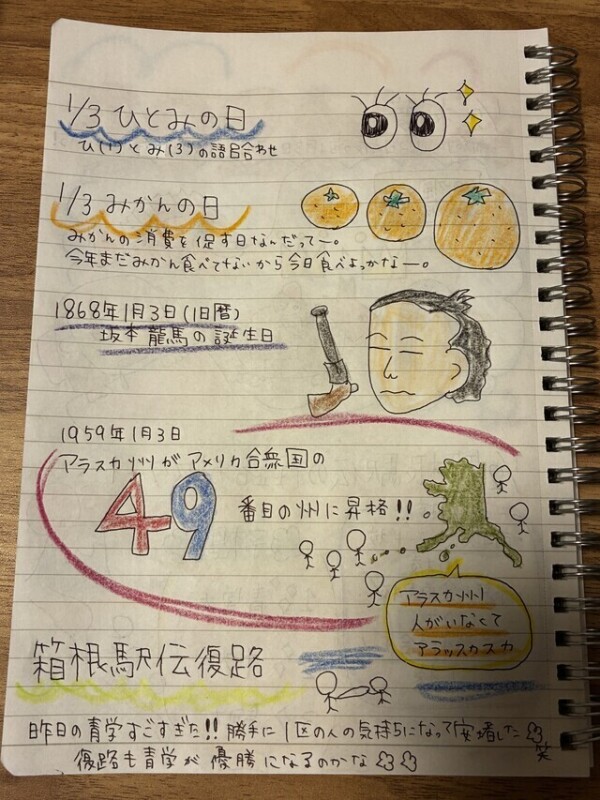 1/3 ひとみの日
ひ(1)とみ(3)の語呂合わせ
1/3 みかんの日
みかんの消費を促す日なんだってー。
今年まだみかん食べてないから今日食べよっかなー。
1868年1月3日(旧暦)
坂本龍馬の誕生日
1959年1月3日
アラスカ州がアメリカ合衆国の
49
番目の州に昇格!!。
アラスカ州
人がいなくて
アラッスカスカ
箱根駅伝復路
昨日の青学すごすぎた!! 勝手に1区の人の気持ちになって安堵した笑
復路も青学が優勝になるのかな